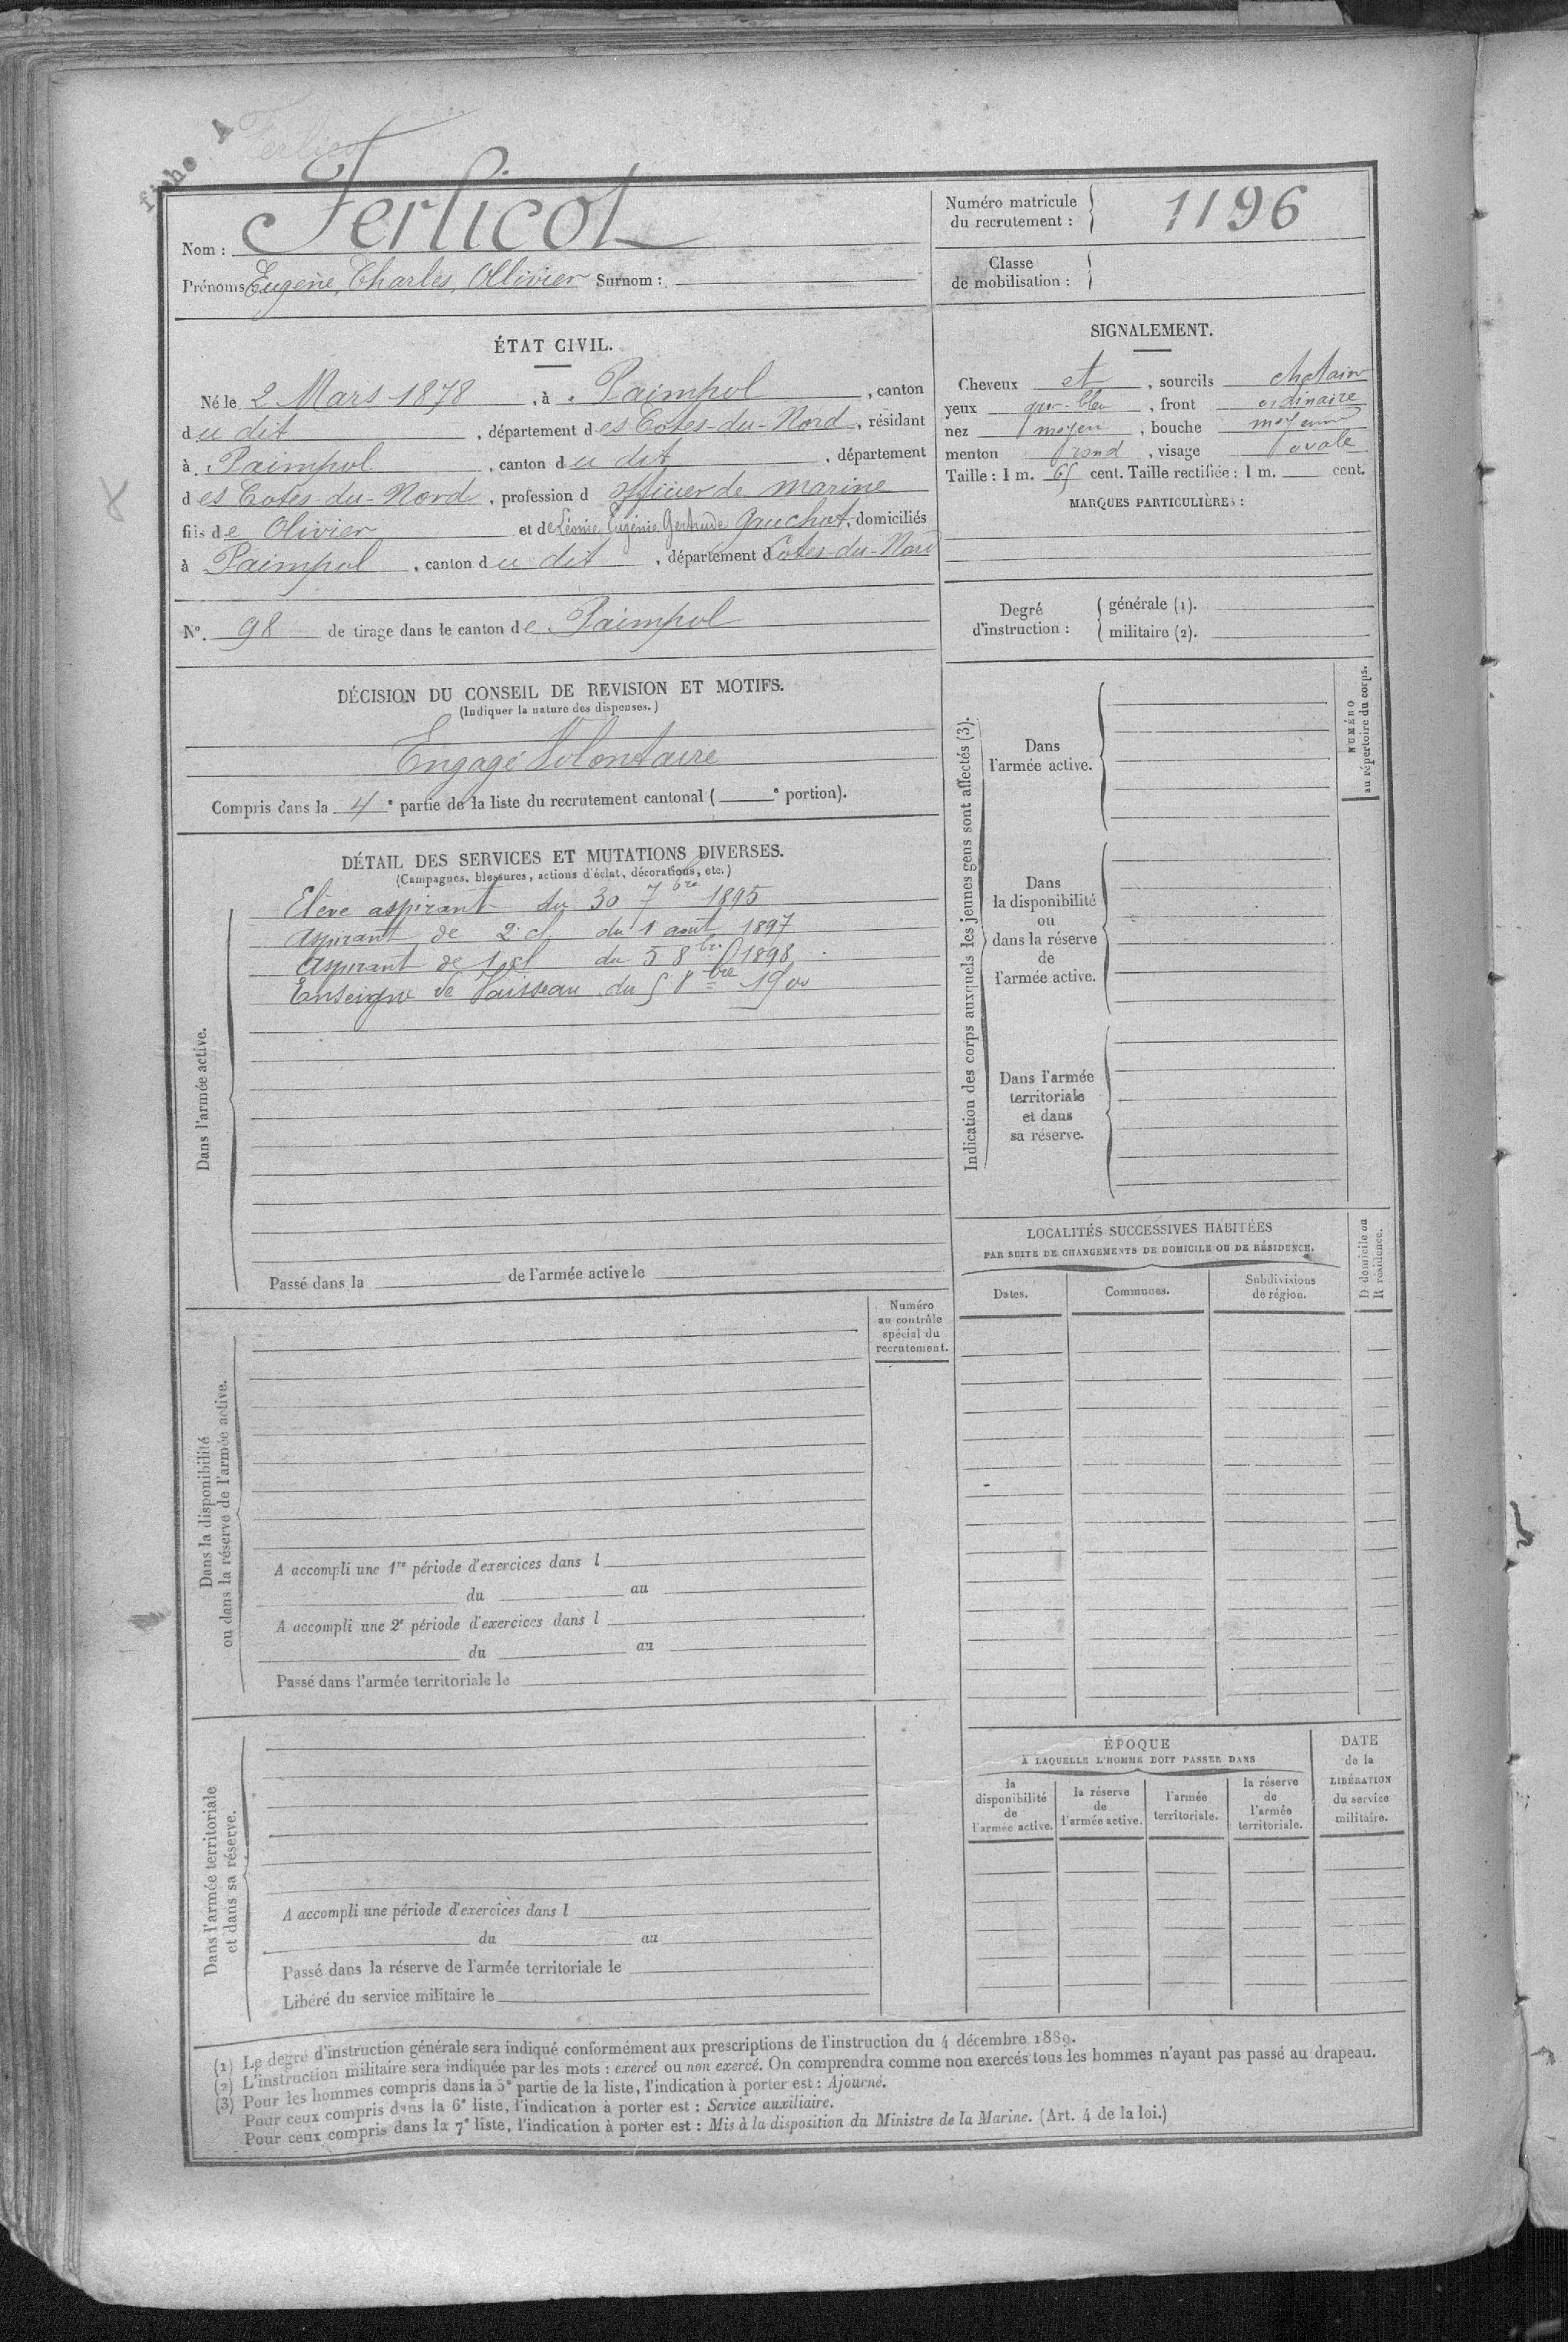 fiche A
Ferlicot
Nom : Ferlicot
Prénoms : Eugène, Charles, Ollivier Surnom :
Numéro matricule du recrutement : 1196
Classe de mobilisation :
ÉTAT CIVIL.
Né le 2 Mars 1878, à Paimpol, canton
du dit, département des Côtes-du-Nord, résidant
à Paimpol, canton du dit, département
des Côtes-du-Nord, profession d officier de marine
fils de Olivier et de Léonie Eugénie Gertrude Gauchat, domiciliés
à Paimpol, canton du dit, département d Côtes-du-Nord
N° 98 de tirage dans le canton de Paimpol
SIGNALEMENT.
Cheveux et, sourcils chatain
yeux gris-bleu, front ordinaire
nez moyen, bouche moyenne
menton rond, visage ovale
Taille : 1 m. 65 cent. Taille rectifiée : 1 m. cent.
MARQUES PARTICULIÈRES :
Degré d'instruction : générale (1).
militaire (2).
DÉCISION DU CONSEIL DE REVISION ET MOTIFS.
(Indiquer la nature des dispenses.)
Engagé Volontaire
Compris dans la 4e partie de la liste du recrutement cantonal ( e portion).
DÉTAIL DES SERVICES ET MUTATIONS DIVERSES.
(Campagnes, blessures, actions d'éclat, décorations, etc.)
Dans l'armée active.
Elève aspirant du 30 7bre 1895
Aspirant de 2e cl du 1 août 1897
Aspirant de 1e cl du 5 8bre 1898
Enseigne de Vaisseau du 5 8bre 1900
Passé dans la de l'armée active le
Indication des corps auxquels les jeunes gens sont affectés (3).
Dans l'armée active.
Dans la disponibilité ou dans la réserve de l'armée active.
Dans l'armée territoriale et dans sa réserve.
NUMÉRO au répertoire du corps.
LOCALITÉS SUCCESSIVES HABITÉES
PAR SUITE DE CHANGEMENTS DE DOMICILE OU DE RÉSIDENCE.
Dates.
Communes.
Subdivisions de région.
D domicile ou R résidence.
Numéro au contrôle spécial du recrutement.
Dans la disponibilité ou dans la réserve de l'armée active.
A accompli une 1re période d'exercices dans l
du au
A accompli une 2e période d'exercices dans l
du au
Passé dans l'armée territoriale le
Dans l'armée territoriale et dans sa réserve.
A accompli une période d'exercices dans l
du au
Passé dans la réserve de l'armée territoriale le
Libéré du service militaire le
ÉPOQUE
À LAQUELLE L'HOMME DOIT PASSER DANS
la disponibilité de l'armée active.
la réserve de l'armée active.
l'armée territoriale.
la réserve de l'armée territoriale.
DATE de la LIBÉRATION du service militaire.
(1) Le degré d'instruction générale sera indiqué conformément aux prescriptions de l'instruction du 4 décembre 1889.
(2) L'instruction militaire sera indiquée par les mots : exercé ou non exercé. On comprendra comme non exercés tous les hommes n'ayant pas passé au drapeau.
(3) Pour les hommes compris dans la 5e partie de la liste, l'indication à porter est : Ajourné.
Pour ceux compris dans la 6e liste, l'indication à porter est : Service auxiliaire.
Pour ceux compris dans la 7e liste, l'indication à porter est : Mis à la disposition du Ministre de la Marine. (Art. 4 de la loi.)